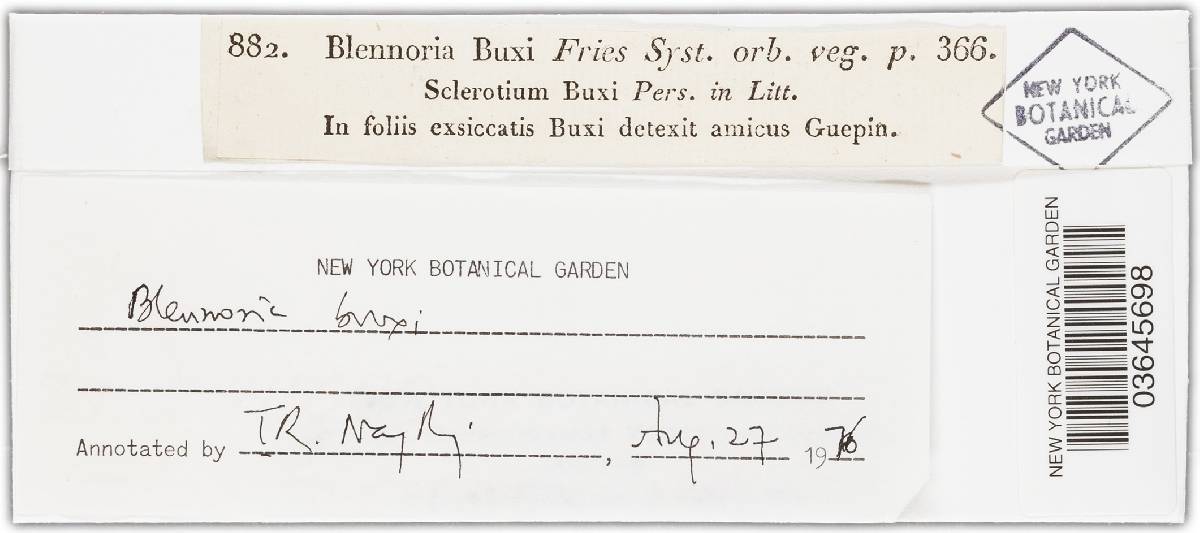 882. Blennoria Buxi Fries Syst. orb. veg. p. 366.
Sclerotium Buxi Pers. in Litt.
In foliis exsiccatis Buxi detexit amicus Guepin.
NEW YORK
BOTANICAL
GARDEN
NEW YORK BOTANICAL GARDEN
Blennoria buxi
Annotated by T.R. Nag Raj, Aug. 27 1976
NEW YORK BOTANICAL GARDEN
03645698